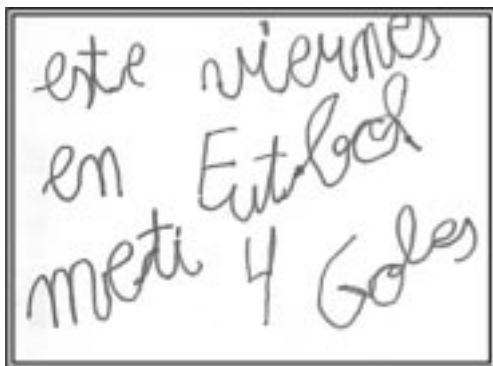 este viernes
en Eutbol
meti 4 Goles